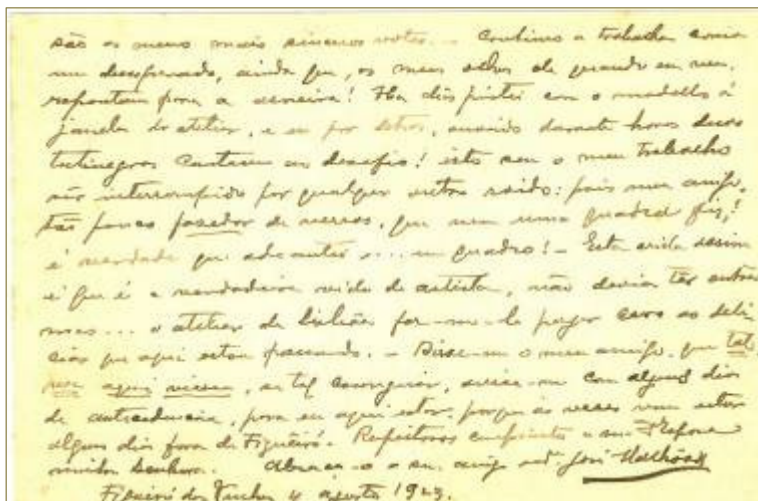 são os meus mais sinceros votos. — Continuo a trabalhar como
um desesperado, ainda que, os meus olhos de quando em vez,
repontam para a
Ha dias pintei com o modello á
janella do atelier, e eu por detraz, ouvindo durante horas duas
tutinegras cantarem ao desafio! isto sem o meu trabalho
ser interrompido por qualquer outro ruido: pois meu amigo,
tão pouco fazedor de versos, que nem uma quadra fiz,!
é verdade que adeantei o... meu quadro! — Esta vida assim
é que é a verdadeira vida de artista, não devia ter outra
mas... o atelier de Lisboa far-me-ha pagar caro as deli
cias que aqui estou passando. — Disse-me o meu amigo, que tal
vez aqui viesse, se tal conseguir, avise-me com alguns dias
de antecedencia, para eu aqui estar, porque ás vezes vou estar
alguns dias fora de Figueiró. Respeitosos cumprimentos a sua
minha Senhora. Abraça-o o seu amigo José Malhoa
Figueiró dos Vinhos 4 agosto 1923.